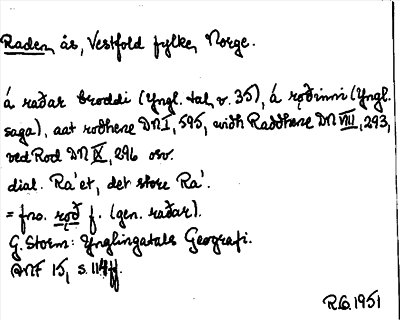 Raden ås, Vestfold fylke, Norge.
á raðar broddi (Yngl. tal, v. 35), á rǫðinni (Yngl.
saga), aat rodhene DN I, 595, widh Raddhene DN VIII, 293,
ved Rod DN IX, 296 osv.
dial. Ra'et, det store Ra'.
= fno. rǫð f. (gen. raðar).
G. Storm: Ynglingatals Geografi.
ANF 15, s. 114 ff.
R.G. 1951